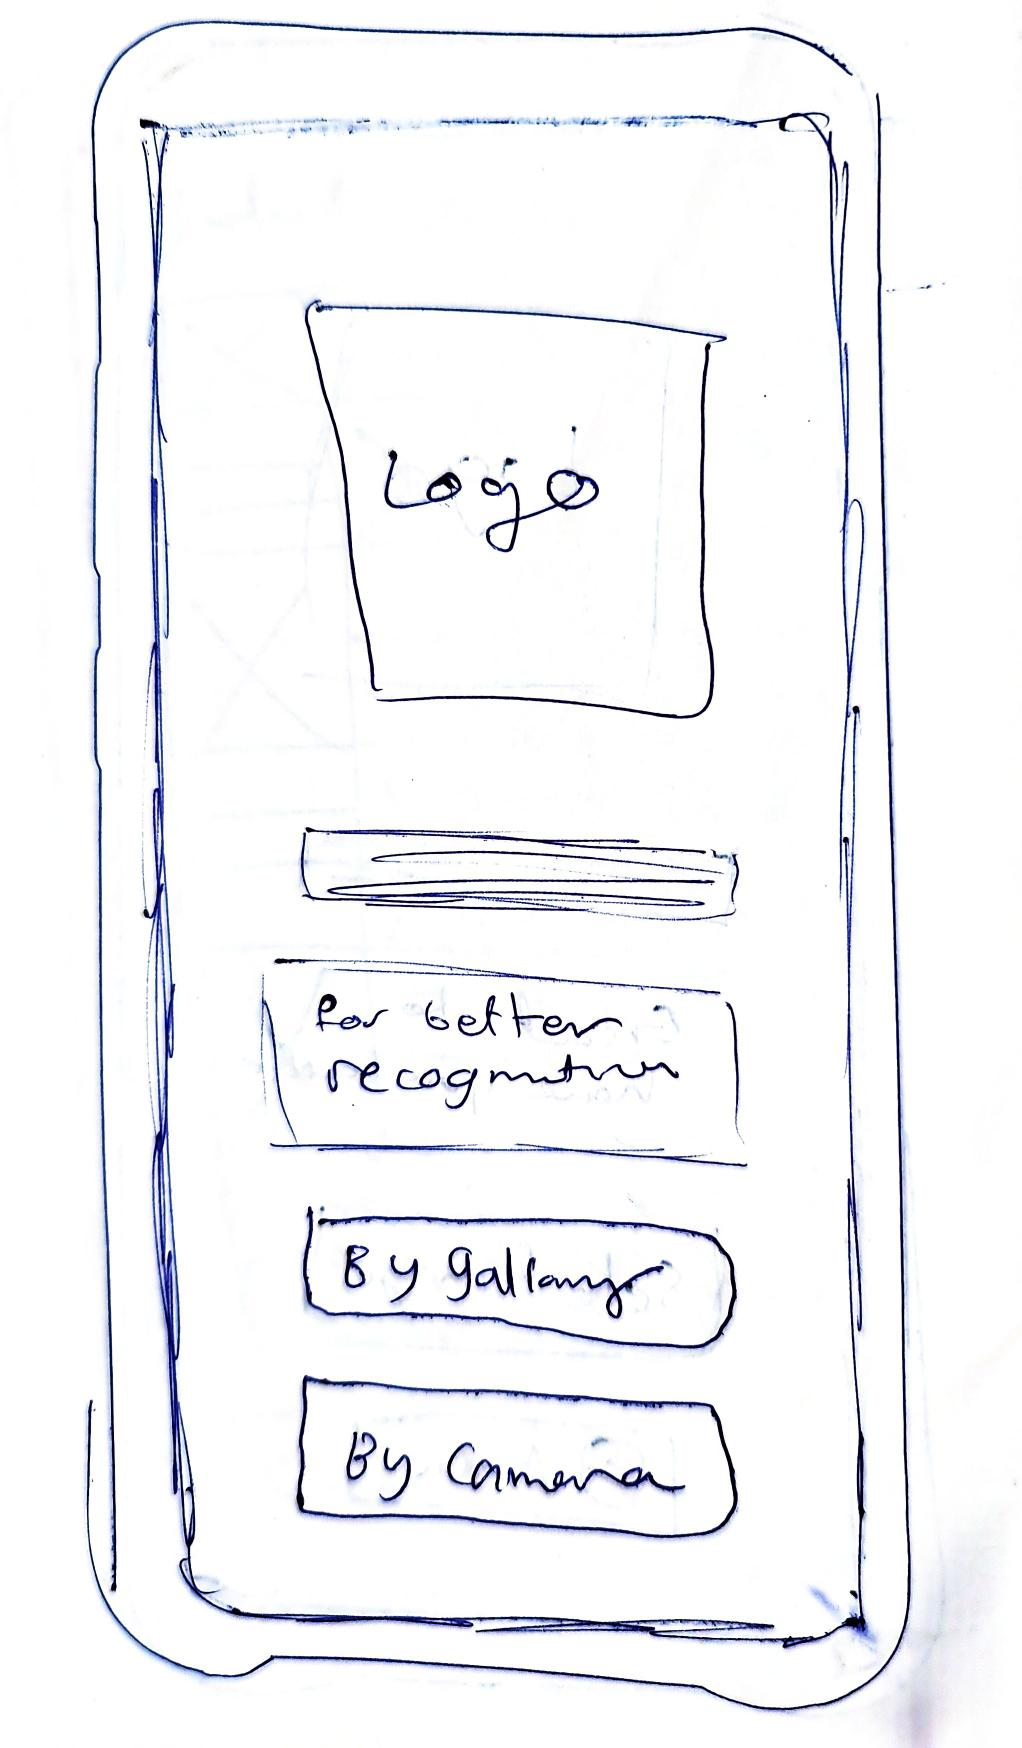 Logo
for better
recognition
By gallary
By Camera